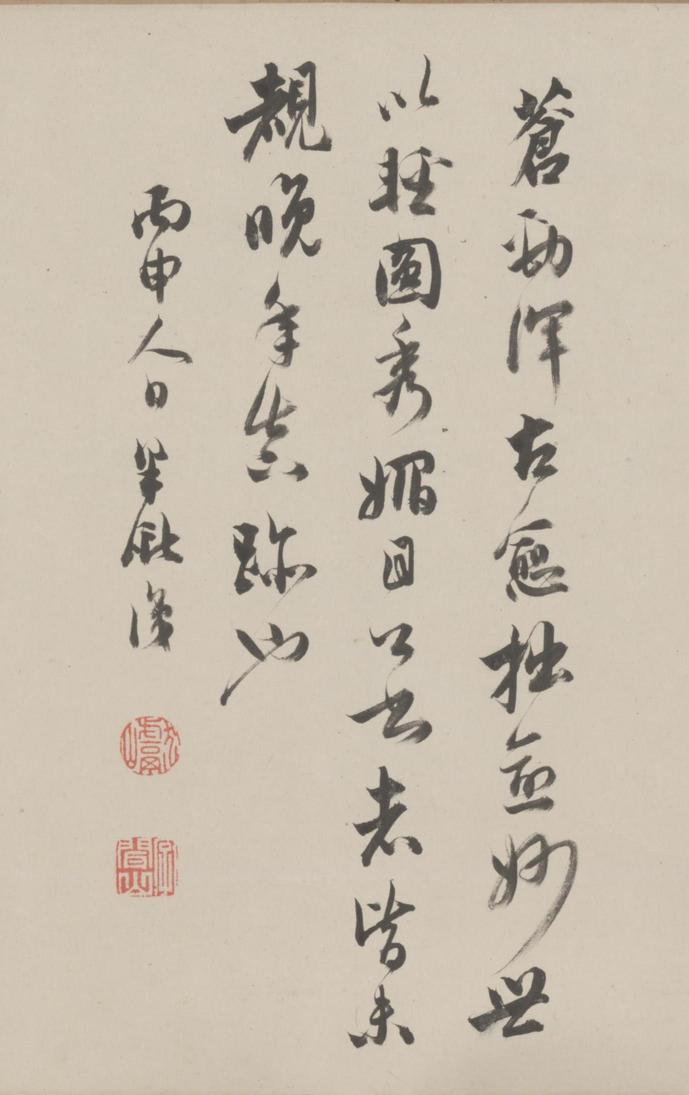 蒼勁渾古愈拙愈妙世
以輕圓秀媚目公書者皆未
覩晚年真跡也
丙申人日